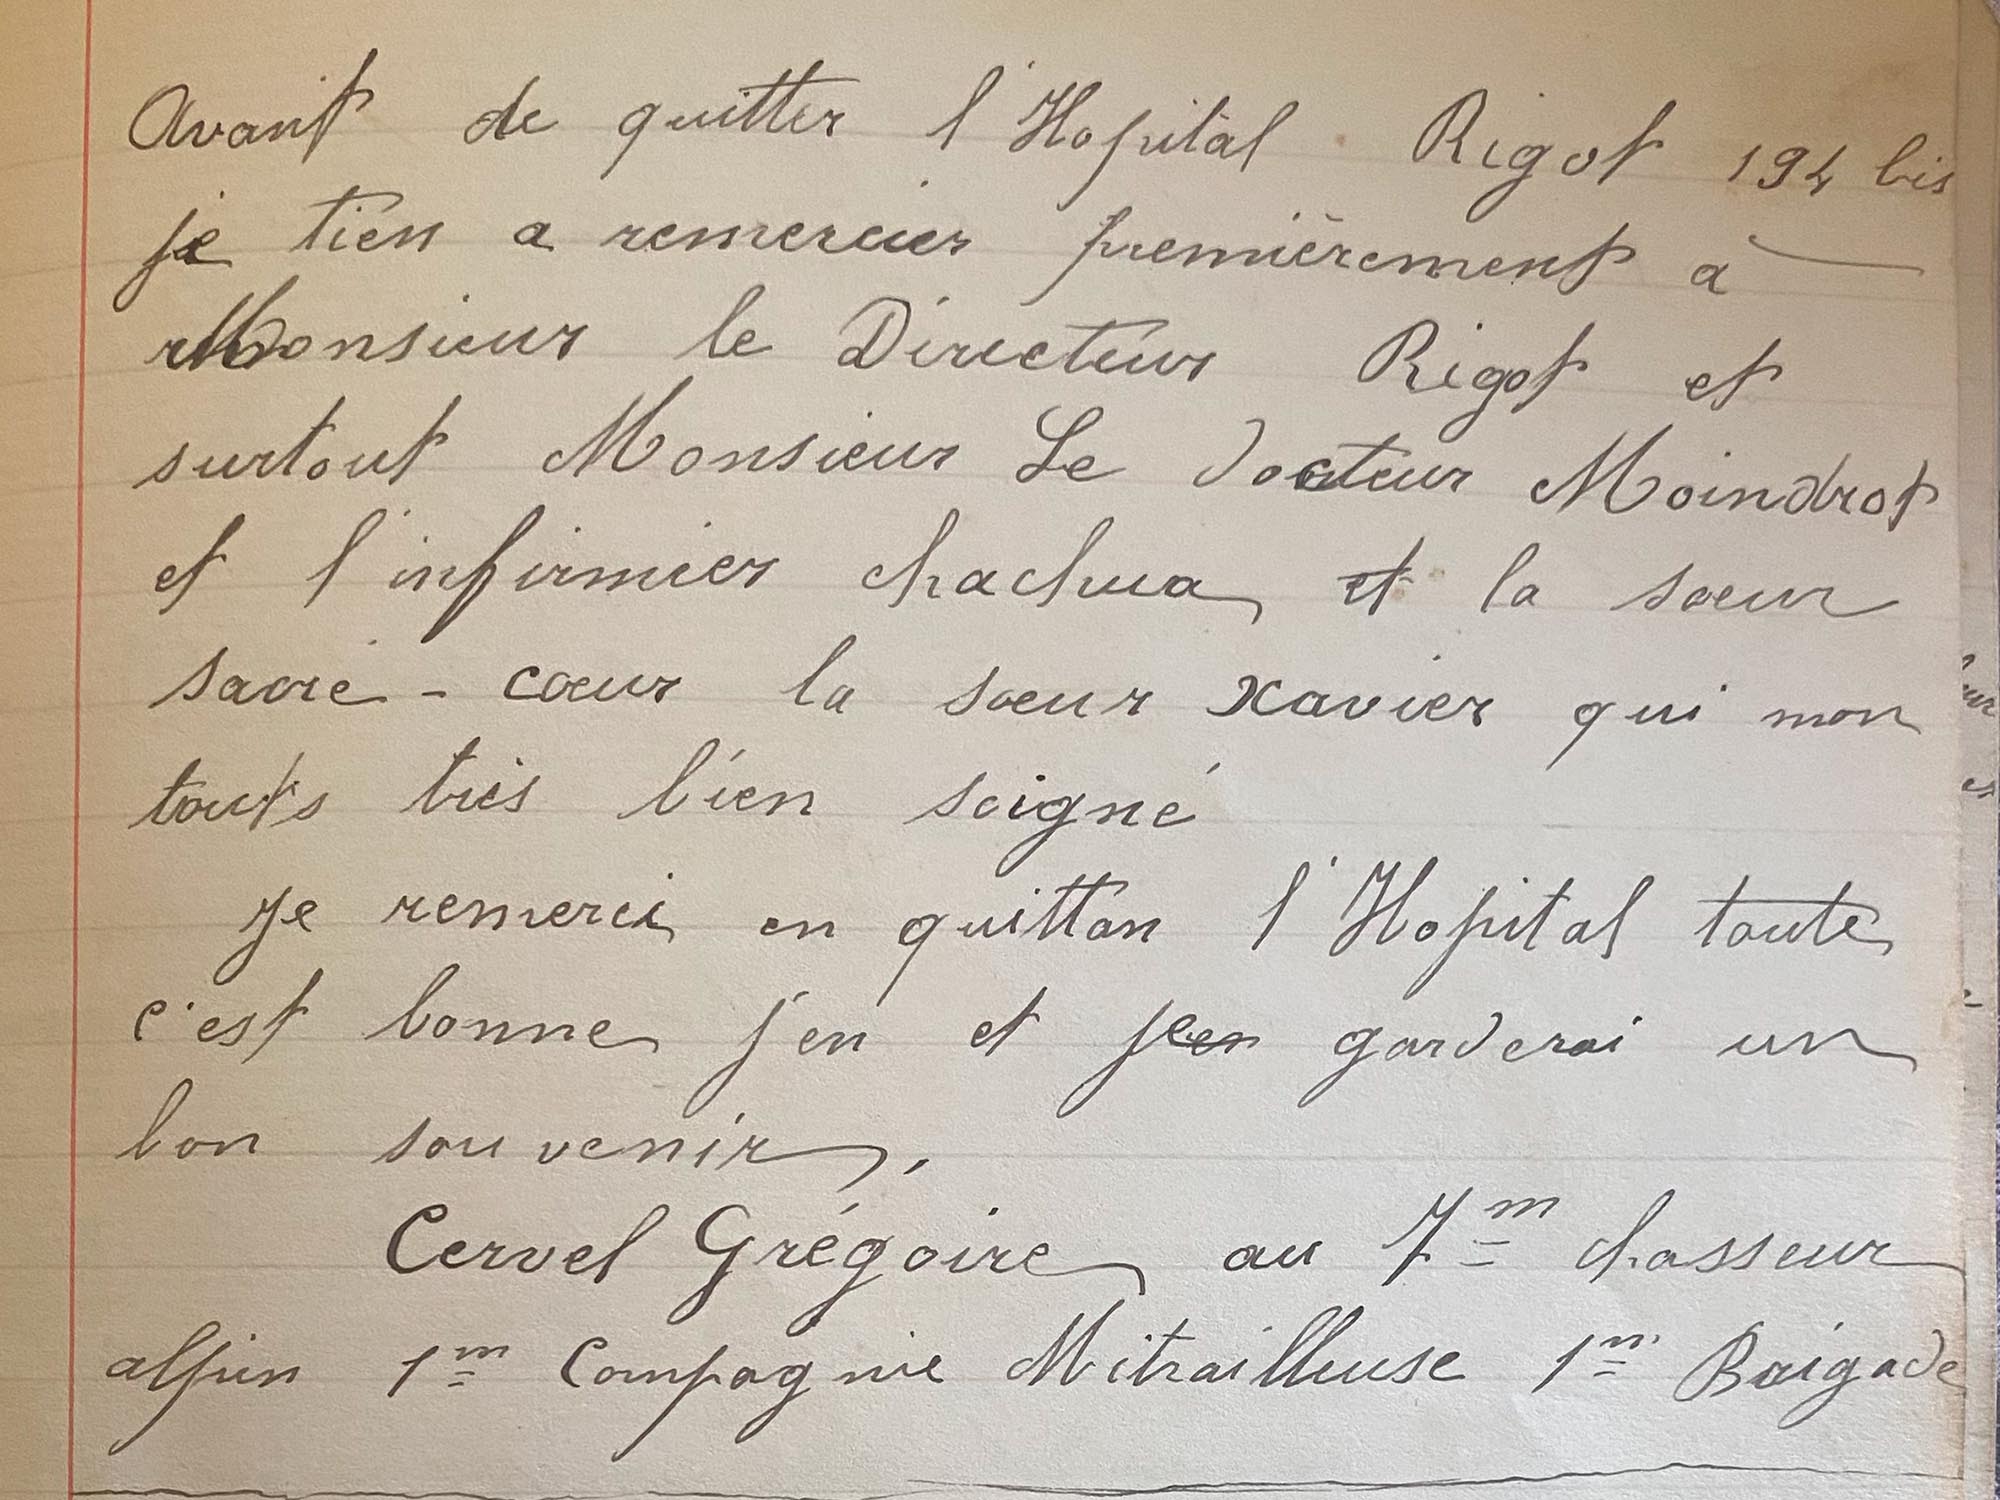 Avant de quitter l'Hopital Rigot 194 bis
je tien a remercier premièrement à
Monsieur le Directeur Rigot et
surtout Monsieur Le docteur Moindrot
et l'infirmier chachua et la sœur
sacré-cœur la sœur xavier qui mon
touts très bien soigné
Je remerci en quittan l'Hopital toute
c'est bonne j'en et garderai un
bon souvenir,
Cervel Grégoire au 7m chasseur
alpin 1m Compagnie Mitrailleuse 1m Brigade